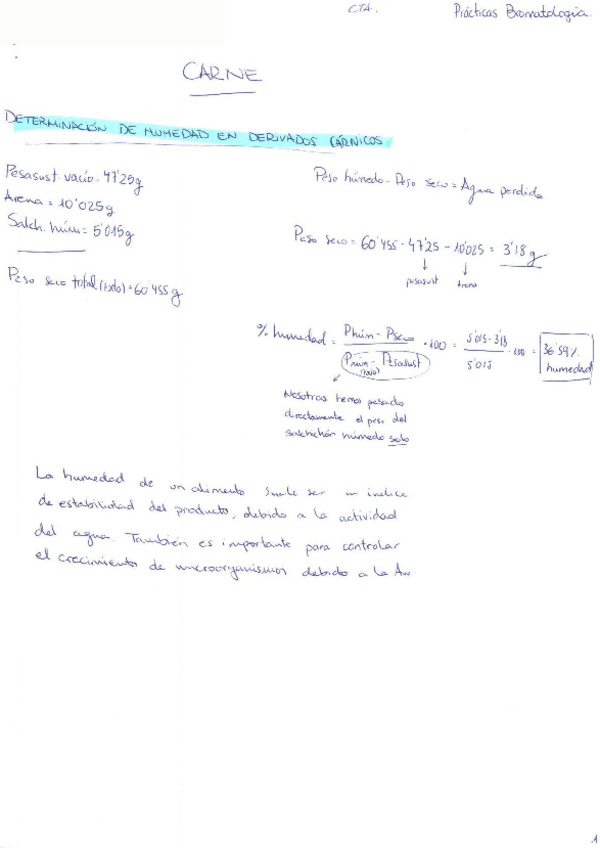 CTA. Prácticas Bromatología
CARNE
DETERMINACIÓN DE HUMEDAD EN DERIVADOS CÁRNICOS
Pesasust. vacío = 47'25g
Arena = 10'025g
Salch. húm = 5'015g
Peso seco total (todo) = 60'455g
Peso húmedo - Peso seco = Agua perdida
Peso seco = 60'455 - 47'25 - 10'025 = 3'18 g
↓ ↓
pesasust arena
% humedad = Phúm - Pseco / Phúm (todo) - Pesasust · 100 = 5'015 - 3'18 / 5'015 · 100 = 36'59% humedad
Nosotros hemos pesado
directamente el peso del
salchichón húmedo solo
La humedad de un alimento suele ser un índice
de estabilidad del producto, debido a la actividad
del agua. También es importante para controlar
el crecimiento de microorganismos debido a la Aw
1